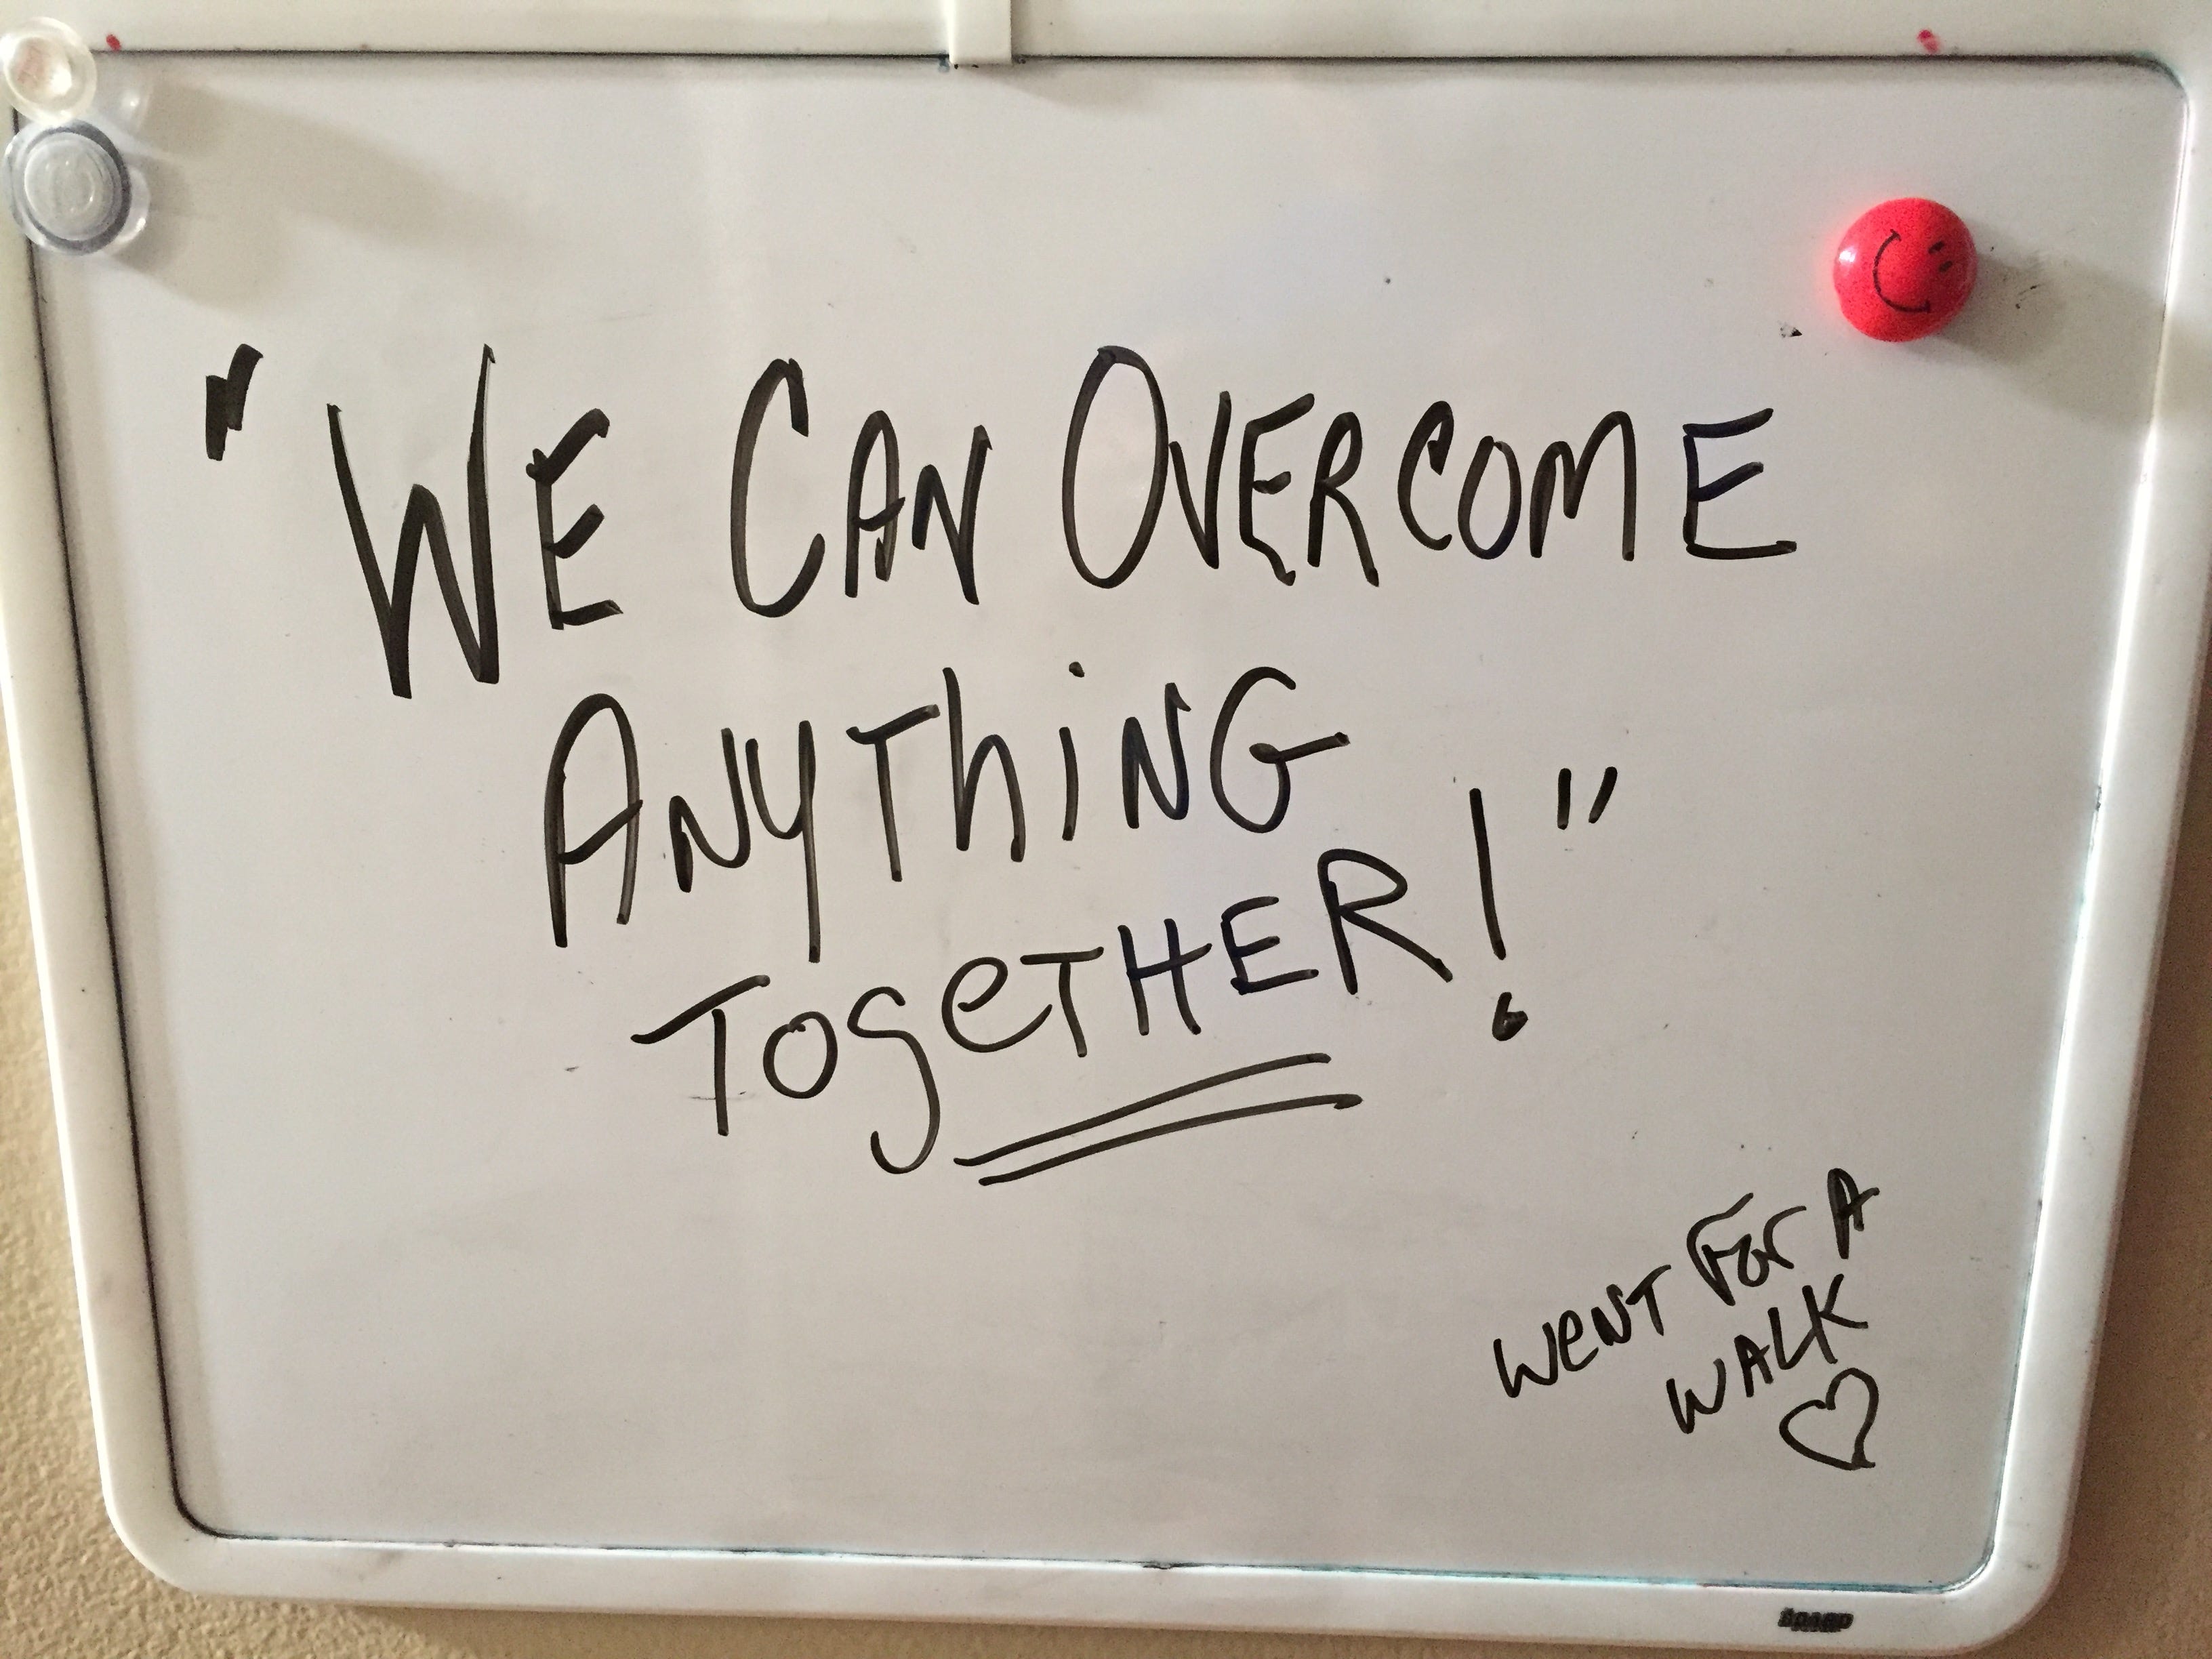 "WE CAN OVERCOME
ANYThiNG
TOgeTHER!"
WeNT FOr A
WALK